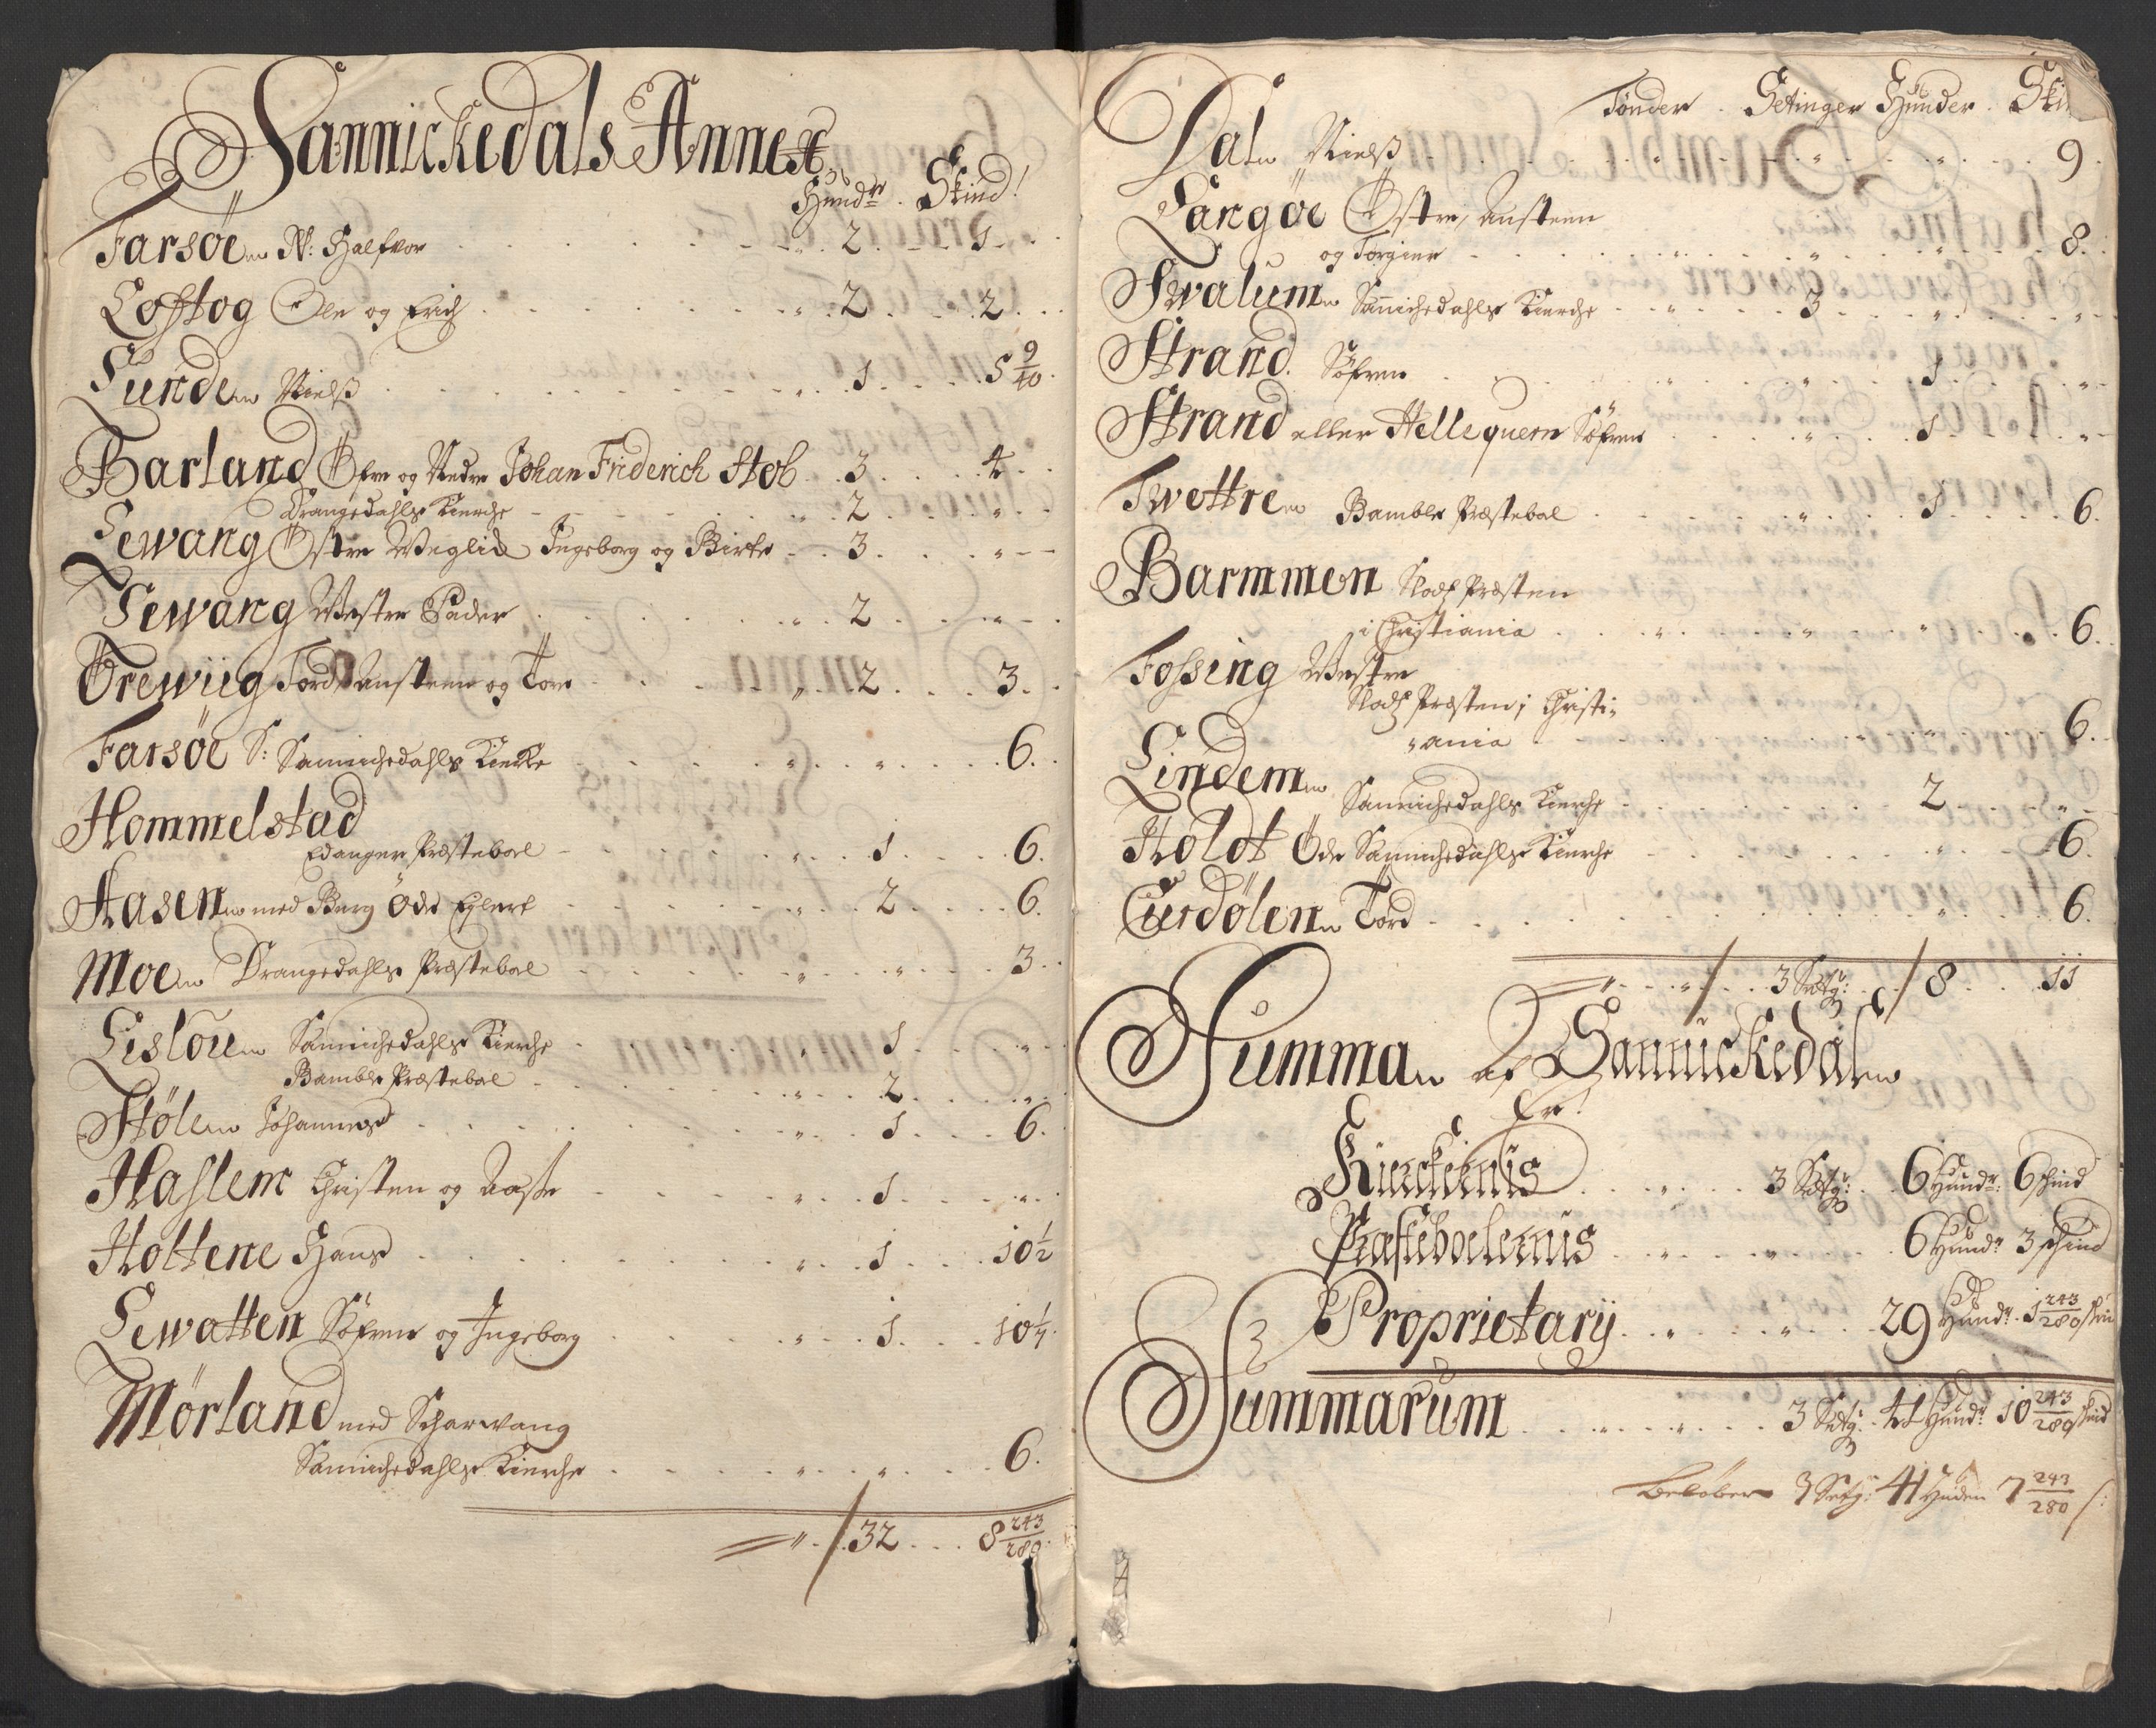 Sannickedals Annex
Hundr. Skind!
Farsøe N: Halfvor 2 1
Loftog Ole og Erich 2 2
Lunde Nielß 1 5 9/40
Barland Øfre og Nedre Johan Friderich Stob 3 4
Drangedahls Kierche 2 "
Lewang Østre Weglid Ingeborg og Birte 3 "
Lewang Westre Peder 2 "
Örewiig Tord Austeen og Tore 2 3
Farsøe S: Sannichedahls Kierke " 6
Hommelstad
Edanger Præsteboel 1 6
Aasen med Berg Øde Eylert 2 6
Moe Drangedahls Præsteboel " 3
Lislöu Sannichedahls Kierche 1 "
Bamble Præsteboel 2 "
Støle Johannes 1 6
Haslem Christen og Aaste 1 "
Holtene Hans 1 10 1/2
Lewatten Söfren og Ingeborg 1 10 1/4
Mörland med Scharwang
Sannichedahls Kierche " " 6
" 32 8 243/280
Tønder Setinger Hunder Ski
Dal Nielß " " " 9
Langøe Østre, Austeen
og Torgier " " " 8
Swalum Sannichedahls Kierche " 3 " "
Strand Söfren " " 1 "
Strand eller Hellequern Söfren " 1 "
Twettre Bamble Præsteboel " 1 6
Barmmen Slodz Præsten
i Christiania " " " 6
Fossing Westre
Slodz Præsten i Christi-
ania " 6
Lindem Sannichedahls Kierche 2 "
Holdt Øde Sannichedahls Kierche " 6
Curdölen Tord " 6
" " 3 Setg: 8 11
Summa af Sannickedal
Er!
Kierckernis " 3 Setg: 6 Hundr: 6 skind
Præsteboelernis " " 6 Hundr 3 skind
Proprietarij " " 29 Hundr. 1 243/280 skin
Summarum " " " 3 Setg: 41 Hundr 10 243/280 skind
Beløber 3 Setg: 41 Huder 7 243/280 s: